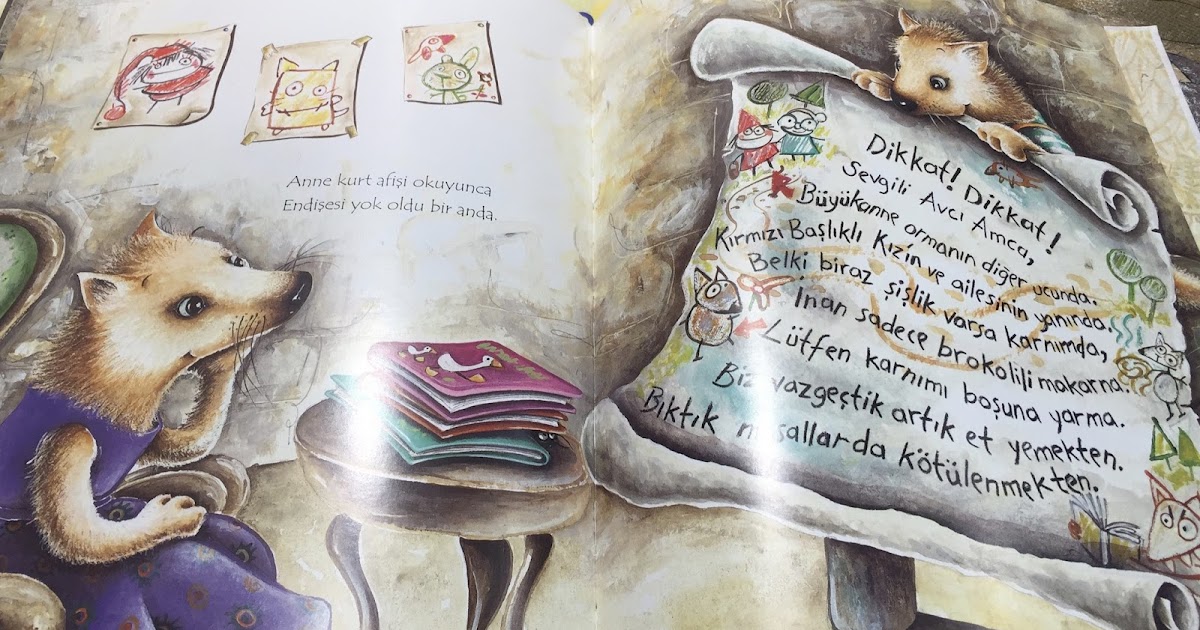 Anne kurt afişi okuyunca
Endişesi yok oldu bir anda.
Dikkat! Dikkat!
Sevgili Avcı Amca,
Büyükanne ormanın diğer ucunda.
Kırmızı Başlıklı Kızın ve ailesinin yanında.
Belki biraz şişlik varsa karnımda,
İnan sadece brokolili makarna.
Lütfen karnımı boşuna yarma.
Biz vazgeştik artık et yemekten.
Bıktık masallarda kötülenmekten.